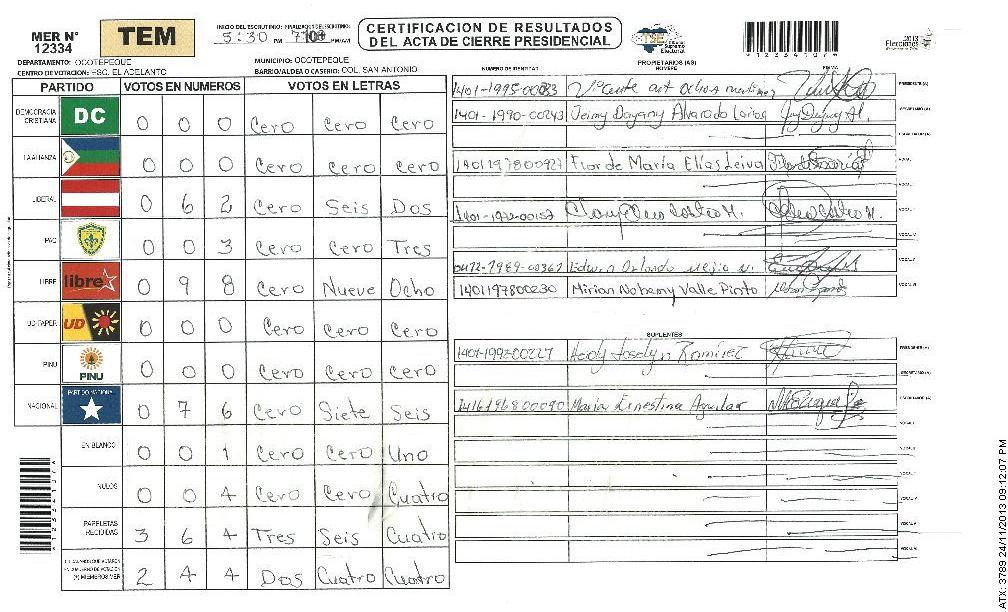 MER N° 12334
TEM
INICIO DEL ESCRUTINIO: FINALIZACION DEL ESCRUTINIO:
5:30 PM PM/AM
CERTIFICACION DE RESULTADOS
DEL ACTA DE CIERRE PRESIDENCIAL
TSE
Tribunal Supremo Electoral
2013
Elecciones
DEPARTAMENTO: OCOTEPEQUE
MUNICIPIO: OCOTEPEQUE
CENTRO DE VOTACION: ESC. EL ADELANTO
BARRIO/ALDEA O CASERIO: COL. SAN ANTONIO
PARTIDO VOTOS EN NUMEROS VOTOS EN LETRAS
DEMOCRACIA CRISTIANA DC 0 0 0 Cero Cero Cero
LA ALIANZA 0 0 0 Cero Cero Cero
LIBERAL 0 6 2 Cero Seis Dos
PAC 0 0 3 Cero Cero Tres
LIBRE libre 0 9 8 Cero Nueve Ocho
UD-FAPER UD 0 0 0 Cero Cero Cero
PINU PINU 0 0 0 Cero Cero Cero
NACIONAL PARTIDO NACIONAL 0 7 6 Cero Siete Seis
EN BLANCO 0 0 1 Cero Cero Uno
NULOS 0 0 4 Cero Cero Cuatro
PAPELETAS RECIBIDAS 3 6 4 Tres Seis Cuatro
(+) MIEMBROS MER 2 4 4 Dos Cuatro Cuatro
NUMERO DE IDENTIDAD PROPIETARIOS (AS) NOMBRE FIRMA
1401-1995-00083 PRESIDENTE (A)
1401-1990-00243 Jeimy Dayany Alvarado Larios SECRETARIO (A)
ESCRUTADOR (A)
1401197800927 Flor de María Elías Leiva VOCAL I
VOCAL II
VOCAL
VOCAL V
0412-1989-00367 Edwin Orlando Mejia VOCAL V
1401197800230 Mirian Nohemy Valle Pinto VOCAL VI
SUPLENTES
1401-1992-00227 Heidy Joselyn Ramirez PRESIDENTE (A)
SECRETARIO (A)
1416196800090 Maria Ernestina Aguilar ESCRUTADOR (A)
VOCAL I
VOCAL
VOCAL
VOCAL V
VOCAL V
VOCAL VI
ATX: 3789 24/11/2013 09:12:07 PM